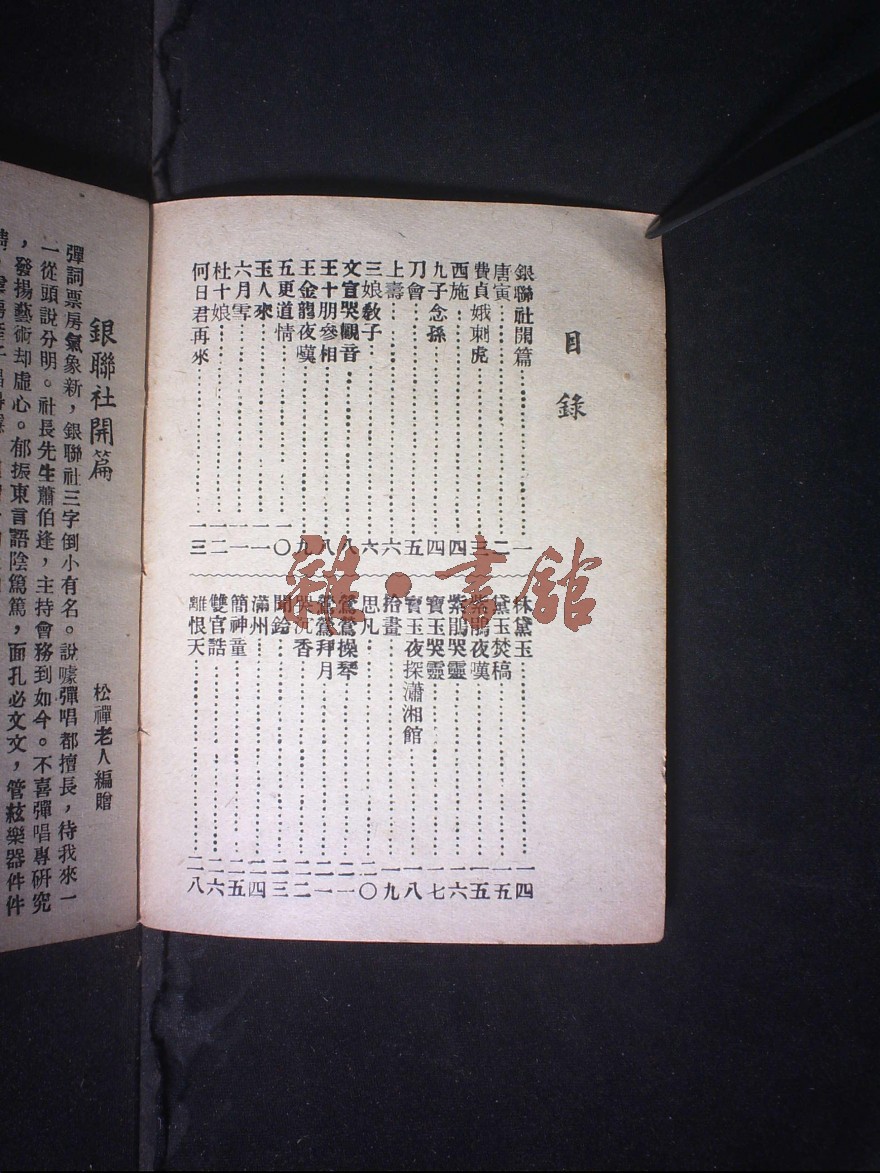 目錄
銀聯社開篇……一
唐寅……二
費貞娥刺虎……三
西施……四
九子念孫……四
刀會……五
上壽……六
三娘教子……六
文宣哭觀音……八
王十朋參相……八
王金龍夜嘆……九
五更道情……一〇
玉人來……一一
六月雪……一一
杜十娘……一二
何日君再來……一三
林黛玉……一四
黛玉焚稿……一五
紫鵑夜嘆……一五
紫鵑哭靈……一六
寶玉哭靈……一七
寶玉夜探瀟湘館……一八
拾畫……一九
思凡……二〇
鶯鶯操琴……二一
鶯鶯拜月……二一
哭沉香……二二
聞鈴……二三
滿州……二四
簡神童……二五
雙官誥……二六
離恨天……二八
雜·書館
銀聯社開篇
松禪老人編贈
彈詞票房氣象新，銀聯社三字倒小有名。說噱彈唱都擅長，待我來一
一從頭說分明。社長先生蕭伯逢，主持會務到如今。不喜彈唱專研究
，發揚藝術却虛心。郁振東言語陰篤篤，面孔必文文，管絃樂器件件